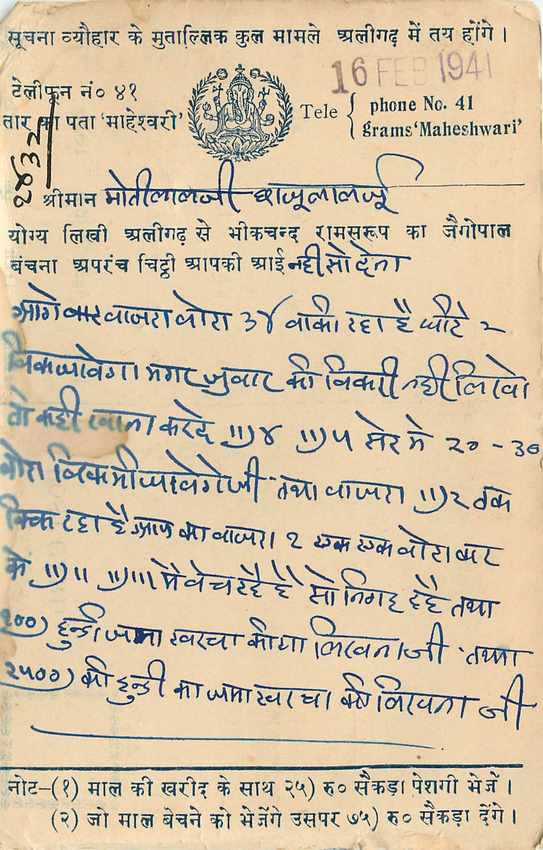 सूचना व्यौहार के मुताल्लिक कुल मामले अलीगढ़ में तय होंगे ।
16 FEB 1941
टेलीफून नं० ४१
तार का पता 'माहेश्वरी'
Tele { phone No. 41
grams 'Maheshwari'
श्रीमान मोतीलालजी
योग्य लिखी अलीगढ़ से भीकचन्द रामसरूप का जैगोपाल
बंचना अपरंच चिट्ठी आपकी आई नही सो देना
आगे बाजरा बोरा ३४ बाकी रहा है
बिक जावेगा। मगर जुवार की बिकरी नही लिखो
तो कही रवाना करदे ॥।)४ ॥।)५ सेर मे २० - ३०
बोरा बिक भी जावेगेजी तथा बाजरा ॥।)२ तक
बिक रहा है आप का बाजरा २ एक एक बोरा कर
के ॥।)॥ ॥।)॥। मे बेच रहे है सो निगह रहे तथा
१००) हुन्डी जमा खरचा लिखनाजी तथा
२५००) की हुन्डी का जमा खरचा लिखना जी
नोट-(१) माल की खरीद के साथ २५) रु० सैकड़ा पेशगी भेजें ।
(२) जो माल बेचने को भेजेंगे उसपर ७५) रु० सैकड़ा देंगे ।